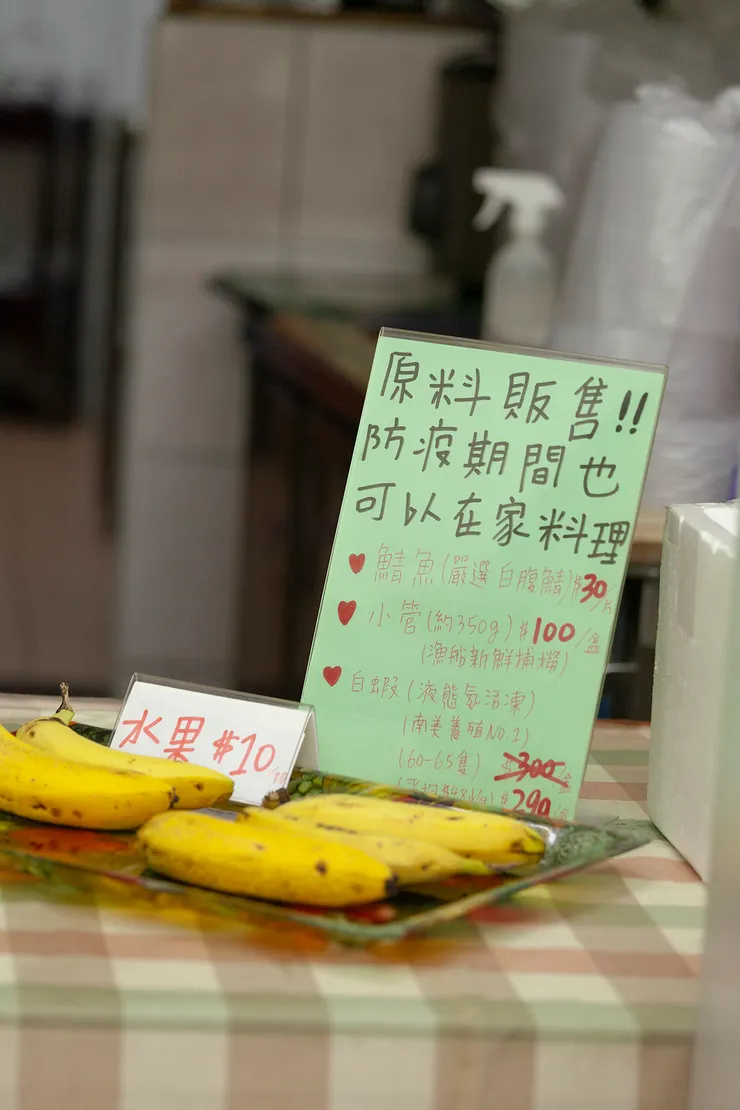 原料販售!!
防疫期間也
可以在家料理
鯖魚(嚴選白腹鯖)$30/片
小管(約350g)$100/盒
(漁船新鮮捕撈)
白蝦(液態氮活凍)
(南美養殖NO.1)
(60-65隻) $300/盒
$290/盒
水果 $10